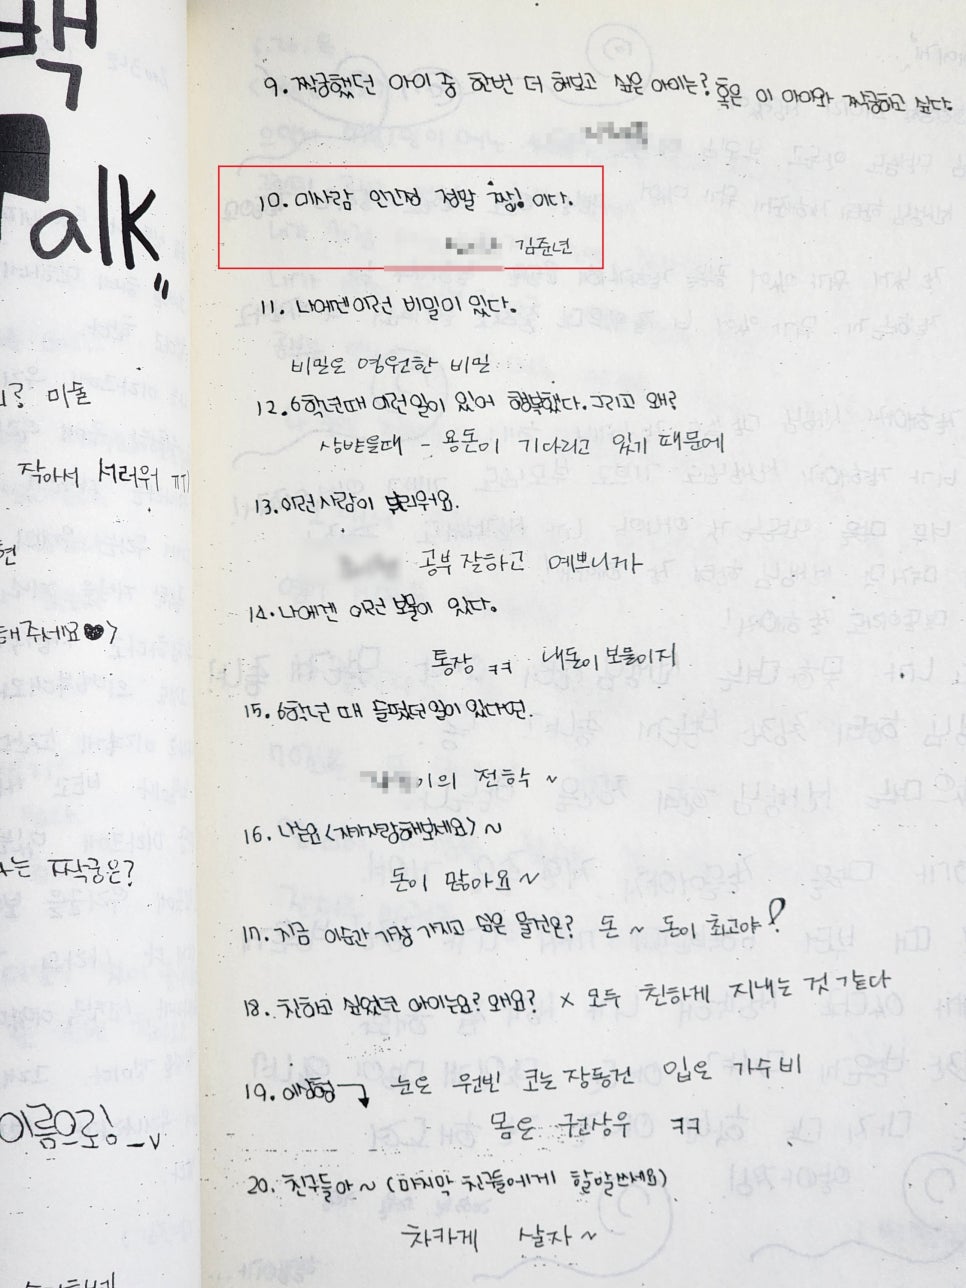 백
Talk"
미술
작아서 서러워 ㅠ
현
해주세요♥>
는 짝궁은?
이름으로! _v
9. 짝궁했던 아이 중 한번 더 해보고 싶은 아이는? 혹은 이 아이와 짝궁하고 싶다.
10. 이사람 인간성 정말 짱! 이다.
김준년
11. 나에겐 이런 비밀이 있다.
비밀은 영원한 비밀
12. 6학년때 이런일이 있어 행복했다. 그리고 왜?
상받을때 - 용돈이 기다리고 있기 때문에
13. 이런사람이 부러워요.
공부 잘하고 예쁘니까
14. 나에겐 이런 보물이 있다.
통장 ㅋㅋ 내돈이 보물이지
15. 6학년 때 슬펐던일이 있다면.
이의 전학 ~
16. 나는요 <자기자랑해보세요> ~
돈이 많아요 ~
17. 지금 이순간 가장 가지고 싶은 물건은? 돈 ~ 돈이 최고야!
18. 친하고 싶었던 아이는요? 왜요? x 모두 친하게 지내는 것 같다
19. 이상형 → 눈은 원빈 코는 장동건 입은 가수 비
몸은 권상우 ㅋㅋ
20. 친구들아 ~ (마지막 친구들에게 할말쓰세요)
차카게 살자 ~